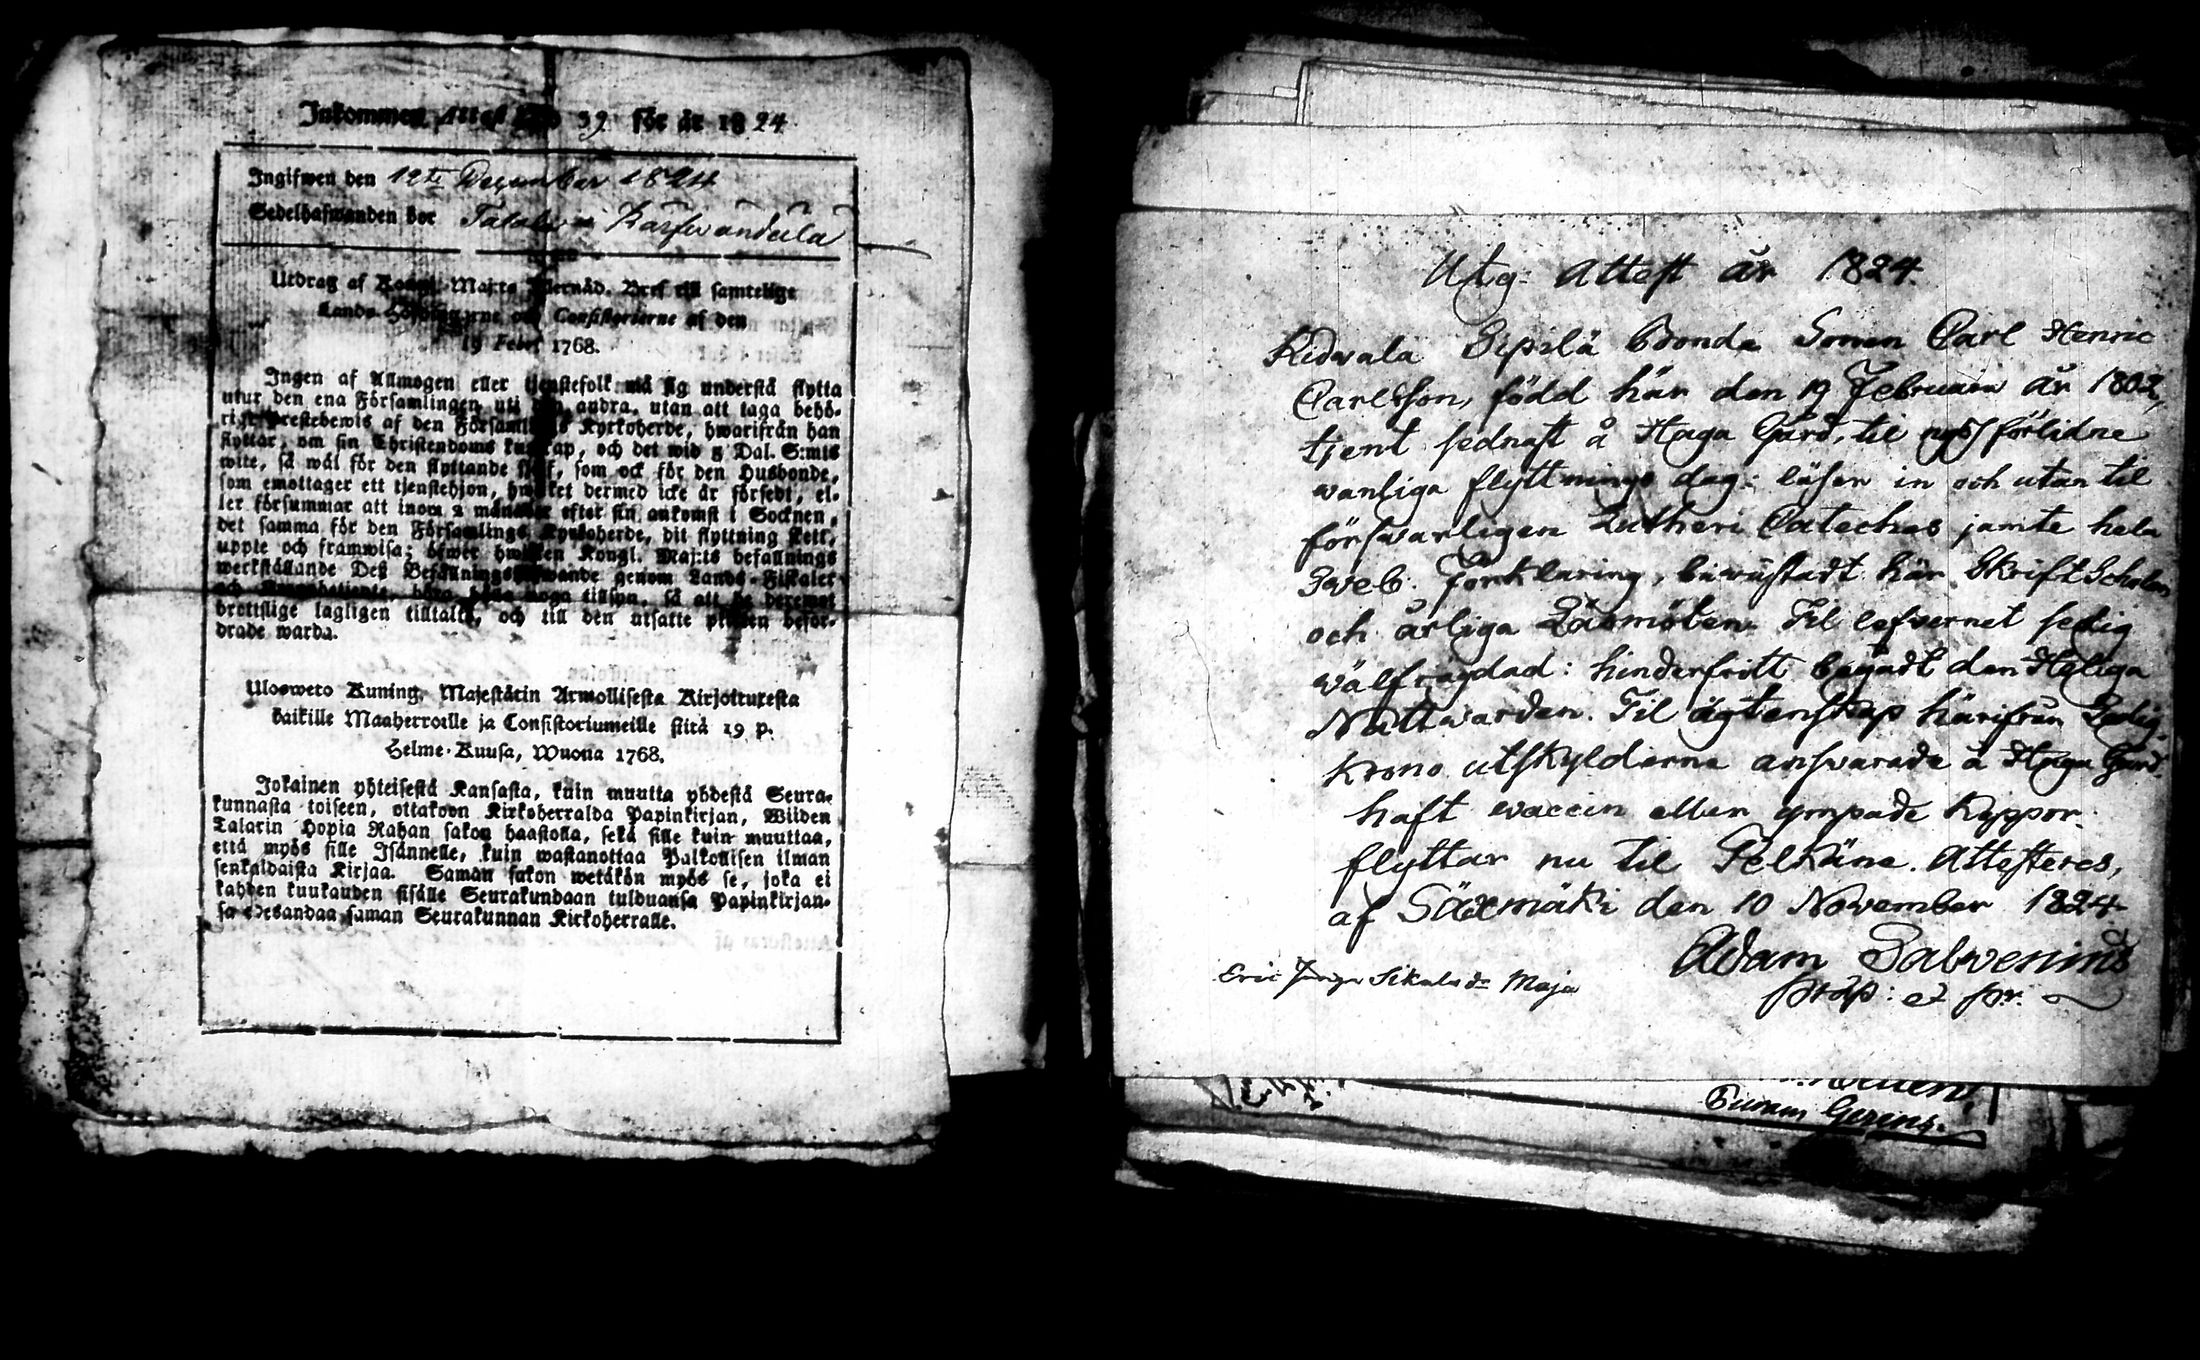 Inkommen Attest No 39 för år 1824
Ingifwen den 12te December 1824
Sedelhafwanden bor
Utdrag af Kongl. Maj:ts Nernåd. Bref till samtelige
Lands-Höfdingarne och Consistorierne af den
19 Febr. 1768.
Ingen af Allmogen eller tjenstefolk må sig understå flytta
utur den ena Församlingen uti den andra, utan att taga behö-
rigt Prestebewis af den Församlings Kyrkoherde, hwarifrån han
flyttar, om sin Christendoms kunskap, och det wid 5 Dal. S:mts
wite, så wäl för den flyttande sjelf, som ock för den Husbonde,
som emottager ett tjenstehjon, hwilket dermed icke är försedt, el-
ler försummar att inom 2 månader efter sin ankomst i Socknen,
det samma för den Församlings Kyrkoherde, dit flyttning skett,
uppte och framwisa; öfwer hwilken Kongl. Maj:ts befallnings
werkställande Deß Befallningshafwande genom Lands-Fiskaler
och hafwa noga tillsyn, så att de deremot
brottslige lagligen tilltalte, och till den utsatte plikten befor-
drade warda.
Ulosweto Kuning. Majestätin Armollisesta Kirjoituxesta
kaikille Maaherroille ja Consistoriumeille siitä 19 p.
Helme-Kuusa, Wuona 1768.
Jokainen yhteisestä Kansasta, kuin muutta yhdestä Seura-
kunnasta toiseen, ottakoon Kirkoherralda Papinkirjan, Wiiden
Talarin Hopia Rahan sakon haastolla, sekä sille kuin muuttaa,
että myös sille Isännelle, kuin wastanottaa Palkollisen ilman
senkaldaista Kirjaa. Saman sakon wetäkön myös se, joka ei
kahden kuukauden sisälle Seurakundaan tulduansa Papinkirjan-
sa edesandaa saman Seurakunnan Kirkoherralle.
Utg: Attest år 1824.
Kidvala Sipilä Bonde Sonen Carl Henric
Carlsson, född här den 19 Februari år 1802,
tjent sednast å Haga Gård, til nyss förlidne
wanliga flyttnings dag: läser in och utan til
försvarligen Lutheri Cateches jämte hela
Sveb. Förklaring, biwistadt här Skrift Scholar
och årliga Läsmöten. Til lefvernet sedig
wälfrägdad: hinderfritt begådt den Heliga
Nattwarden. Til ägtenskap härifrån Ledig.
Krono utskylderne answarade å Haga Gård.
haft waccin eller ympade Koppor.
flyttar nu til Pelkäne. Attesteres,
af Säxmäki den 10 November 1824.
Adam Salvenius
prap: et pr.
Eric Sikala Maja
Gerens.